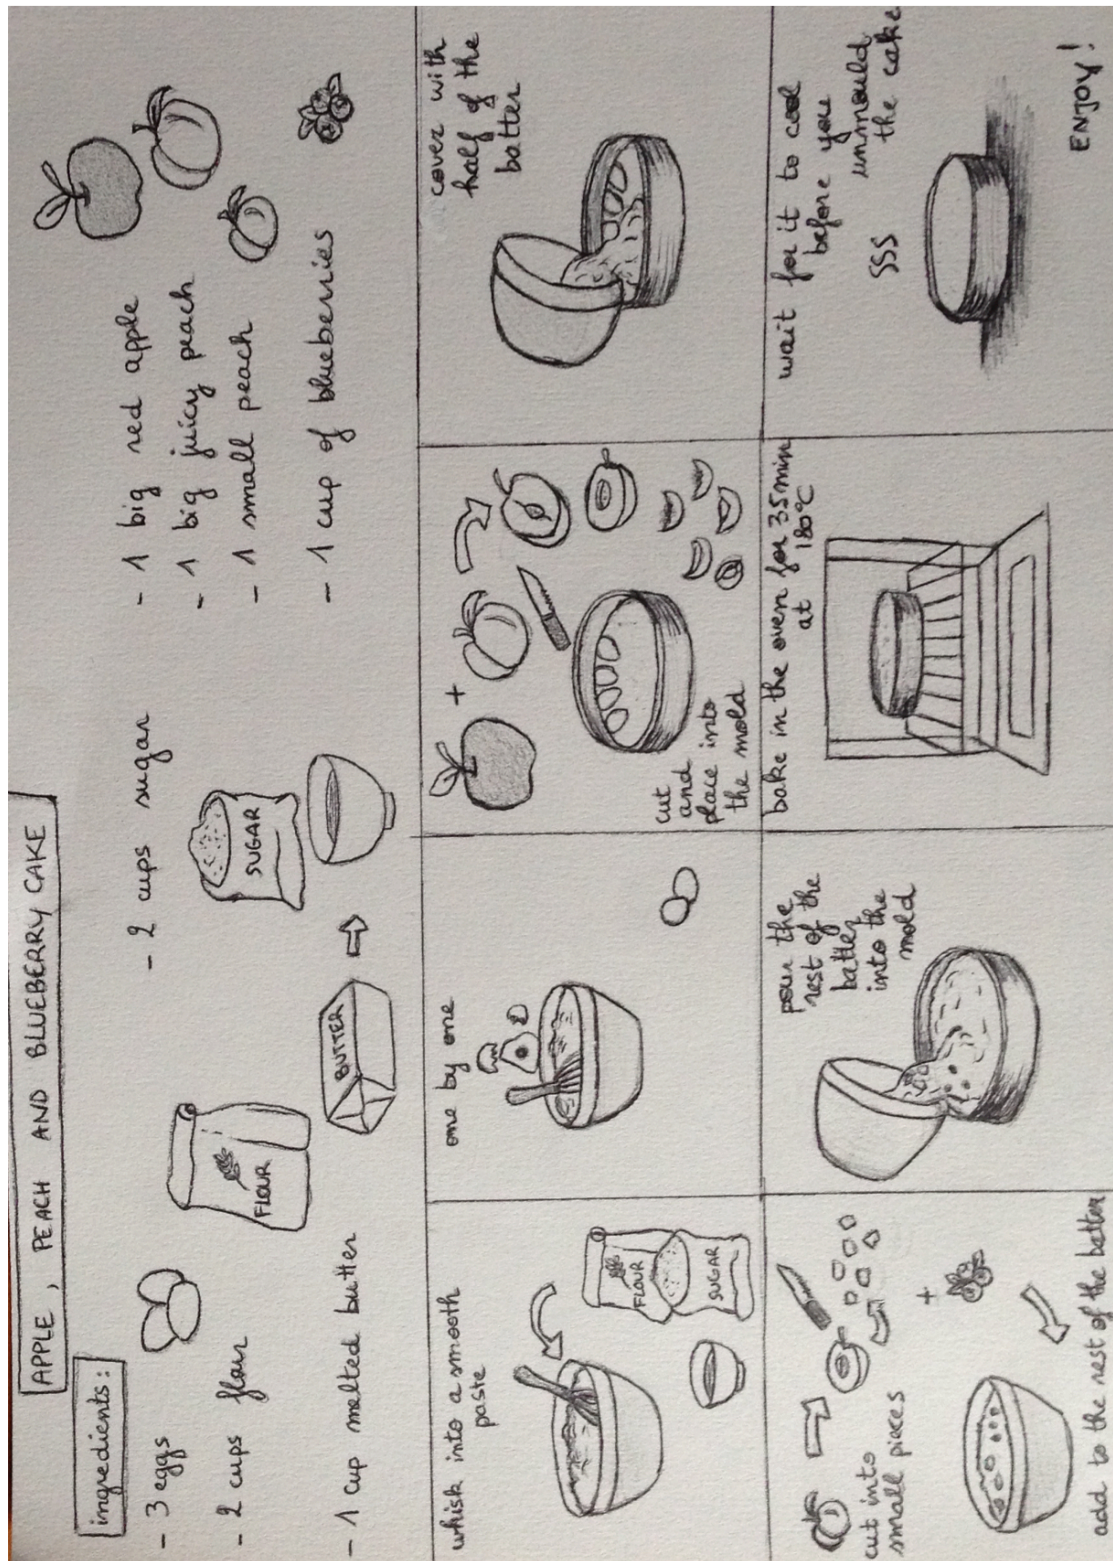 APPLE, PEACH AND BLUEBERRY CAKE
ingredients:
- 3 eggs
- 2 cups flour
- 1 cup melted butter
FLOUR
BUTTER
- 2 cups sugar
SUGAR
- 1 big red apple
- 1 big juicy peach
- 1 small peach
- 1 cup of blueberries
whisk into a smooth
paste
FLOUR
SUGAR
one by one
+
cut
and
place into
the mold
cover with
half of the
batter
cut into
small pieces
+
add to the rest of the batter
pour the
rest of the
batter
into the
mold
bake in the oven for 35min
at 180°C
wait for it to cool
before you
unmould
the cake
SSS
ENJOY!